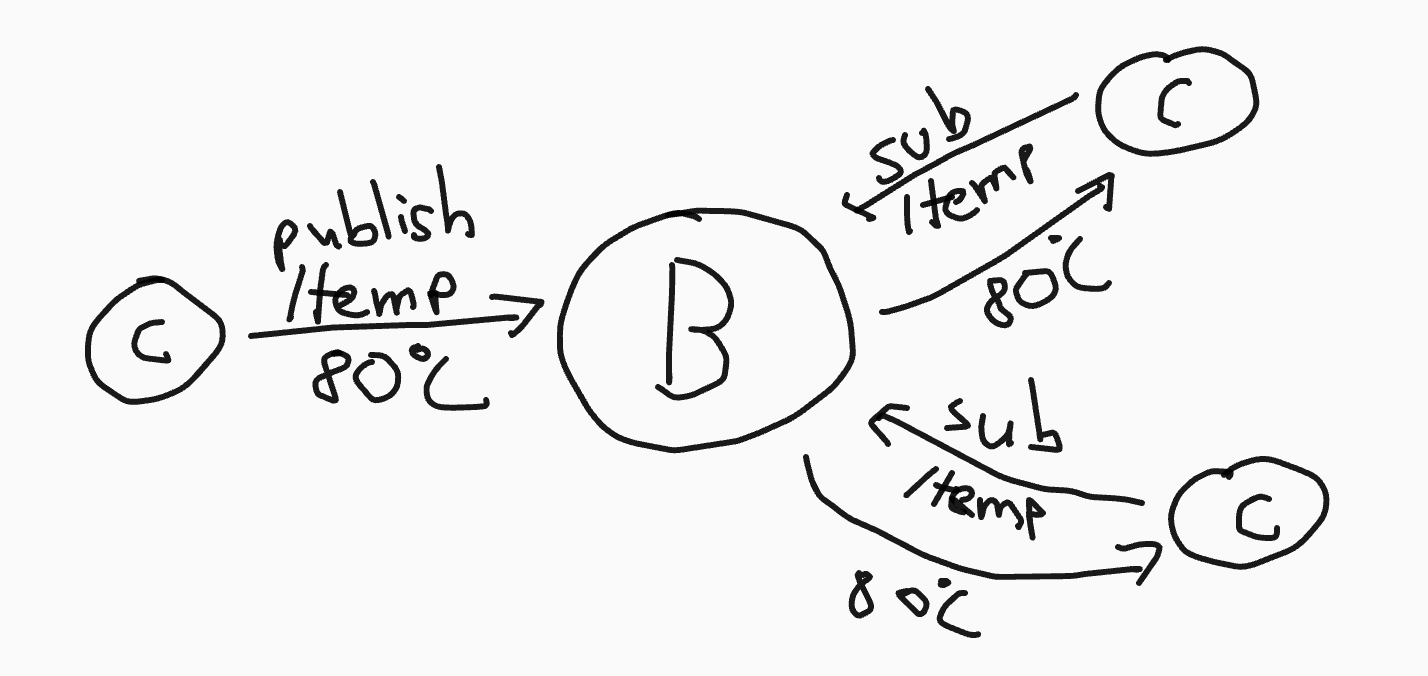 C
publish
/temp
80°C
B
sub
/temp
80°C
C
sub
/temp
80°C
C